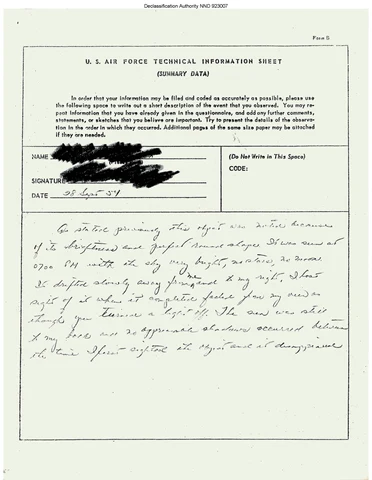 Declassification Authority NND 923007
Form S
U. S. AIR FORCE TECHNICAL INFORMATION SHEET
(SUMMARY DATA)
In order that your information may be filed and coded as accurately as possible, please use
the following space to write out a short description of the event that you observed. You may re-
peat information that you have already given in the questionnaire, and add any further comments,
statements, or sketches that you believe are important. Try to present the details of the observa-
tion in the order in which they occurred. Additional pages of the same size paper may be attached
if they are needed.
NAME
SIGNATURE
DATE 28 Sept 54
(Do Not Write in This Space)
CODE:
As stated previously this object was noted because
of its brightness and perfect round shape. It was seen at
0700 PM with the sky very bright, no stars, no moon
It drifted slowly away from me and to my right, I lost
sight of it when it completely faded from my view as
though you turned a light off. The sun was still
to my back and no appreciable shadows occurred between
the time I first sighted the object and it disappeared